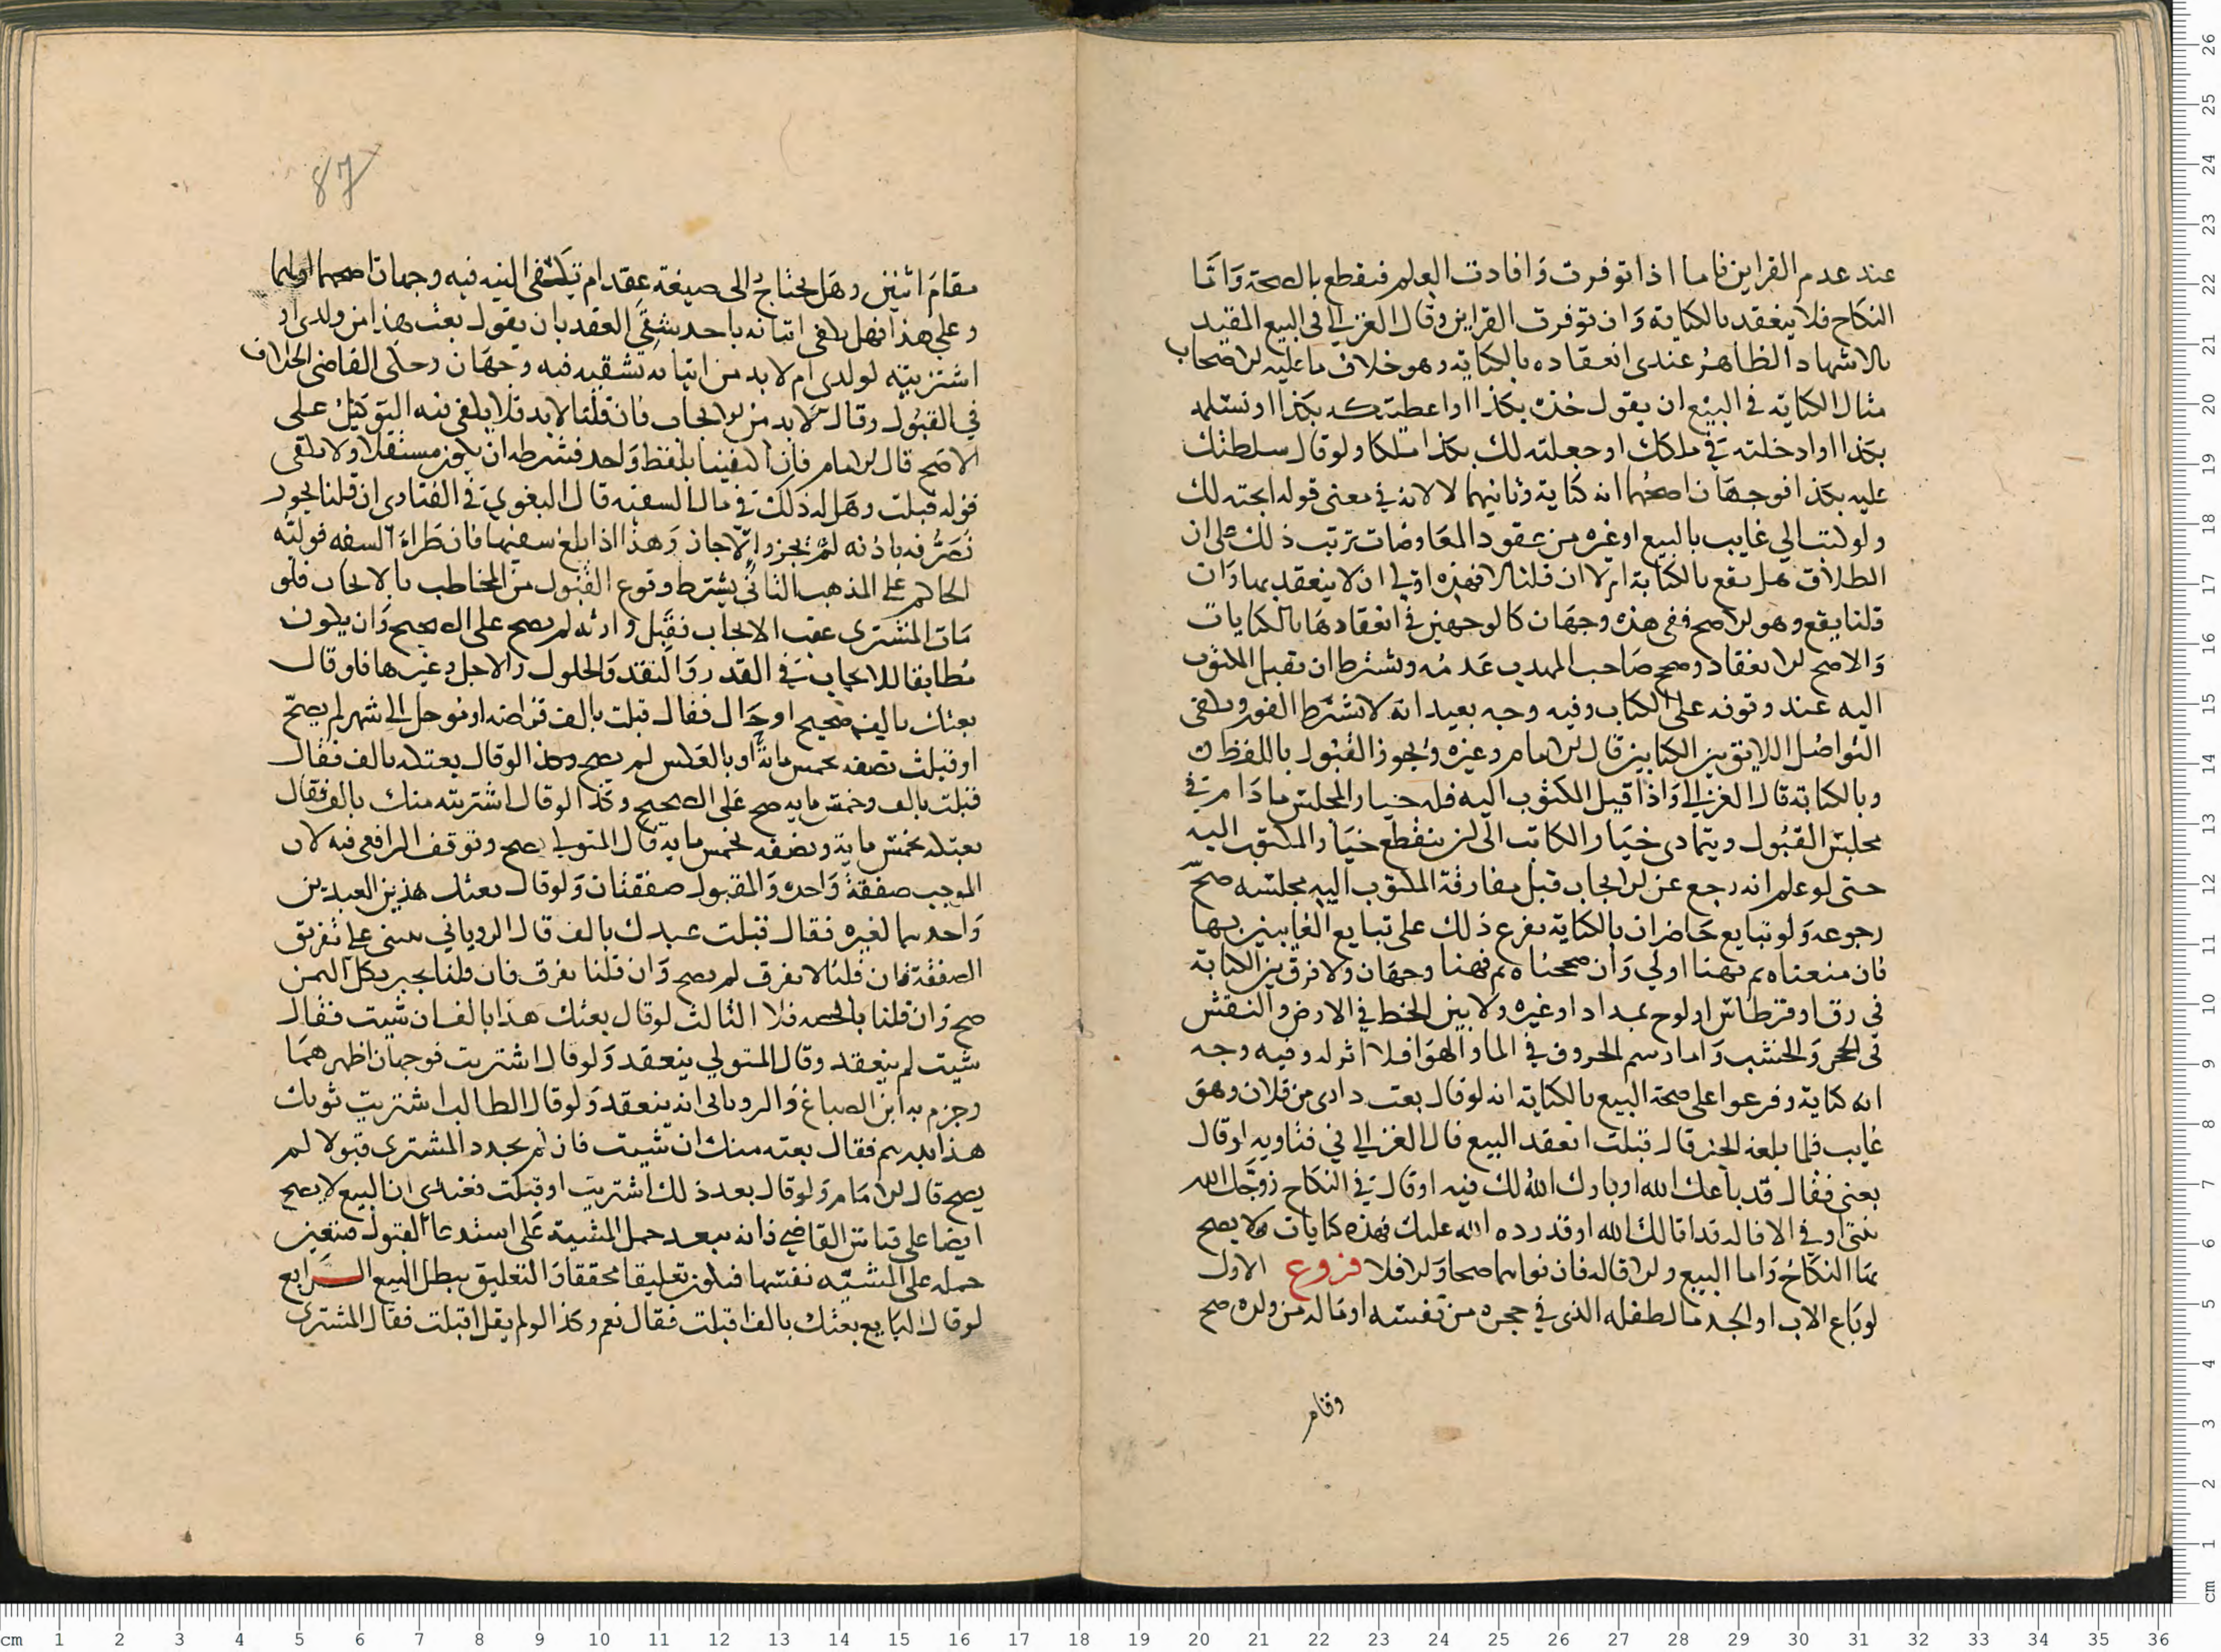 عند عدم القراين فاما اذا توفرت وافادت العلم فنقطع بالصحة واما
النكاح فلا ينعقد بالكناية وان توفرت القراين وقال الغزالي في البيع المقيد
بالاشهاد الظاهر عندي انعقاده بالكناية وهو خلاف ما عليه الاصحاب
مثال الكناية في البيع ان يقول خذه بكذا او اعطيتكه بكذا او تسلمه
بكذا او ادخلته في ملكك او جعلته لك بكذا ملكا ولو قال سلطتك
عليه بكذا فوجهان اصحهما انه كناية وثانيهما لا لانه في معنى قوله ابحته لك
ولو كتب الي غايب بالبيع او غيره من عقود المعاوضات ترتب ذلك على ان
الطلاق هل يقع بالكتابة ام لا ان قلنا لا فهذه اولي ان لا ينعقد بها وان
قلنا يقع وهو الاصح ففي هذه وجهان كالوجهين في انعقادها بالكنايات
والاصح الانعقاد وصحح صاحب المهذب عدمه ويشترط ان يقبل المكتوب
اليه عند وقوفه على الكتاب وفيه وجه بعيد انه لا يشترط الفور ويكفي
التواصل اللايق بين الكتابين قال الامام وغيره ويجوز القبول باللفظ
وبالكتابة قال الغزالي واذا قبل المكتوب اليه فله خيار المجلس ما دام في
مجلس القبول ويتمادى خيار الكاتب الى ان ينقطع خيار المكتوب اليه
حتى لو علم انه رجع عن الايجاب قبل مفارقة المكتوب اليه مجلسه صح
رجوعه ولو تبايع حاضران بالكتابة تفرع ذلك على تبايع الغايبين بها
فان منعناه ثم فهنا اولي وان صححناه ثم فهنا وجهان ولا فرق بين الكتابة
في رق او قرطاس او لوح بمداد او غيره ولا بين الخط في الارض والنقش
في الحجر والخشب واما رسم الحروف في الماء والهواء فلا اثر له وفيه وجه
انه كناية وفرعوا على صحة البيع بالكتابة انه لو قال بعت داري من فلان وهو
غايب فلما بلغه الخبر قال قبلت انعقد البيع قال الغزالي في فتاويه لو قال
بعني فقال قد باعك الله او بارك الله لك فيه او قال في النكاح زوجك الله
بنتي او في الاقالة قد اقالك الله او قد رده الله عليك فهذه كنايات فلا يصح
بها النكاح واما البيع والاقالة فان نواهما صحا والا فلا فروع الاول
لو باع الاب او الجد مال طفله الذي في حجره من نفسه او ماله من ولده صح
وقام
87
مقام اثنين وهل يحتاج الى صيغة عقد ام تكفي النيه فيه وجهان اصحهما اولهما
وعلى هذا فهل يكفي اتيانه باحد شقي العقد بان يقول بعت هذا من ولدي او
اشتريته لولدي ام لا بد من اتيانه بشقيه فيه وجهان وحكى القاضي الخلاف
في القبول وقال لا بد من الايجاب فان قلنا لا بد فلا يكفي فيه التوكيل على
الاصح قال الامام فان اكتفينا بلفظ واحد فشرطه ان يكون مستقلا ولا يكفي
قوله قبلت وهل له ذلك في مال السفيه قال البغوي في الفتاوى ان قلنا يجوز
تصرفه باذنه لم يجز والا جاز وهذا اذا بلغ سفيها فان طراء السفه فوليه
الحاكم على المذهب الثاني يشترط وقوع القبول من المخاطب بالايجاب فلو
مات المشتري عقب الايجاب فقبل وارثه لم يصح على الصحيح وان يكون
مطابقا للايجاب في القدر والنقد والحلول والاجل وغيرها فلو قال
بعتك بالف صحيح او حال فقال قبلت بالف قراضه او موجل الى شهر لم يصح
او قبلت نصفه بخمس مائة او بالعكس لم يصح وكذا لو قال بعتكه بالف فقال
قبلت بالف وخمس مايه صح على الصحيح وكذا لو قال اشتريته منك بالف فقال
بعتكه بخمس ماية ونصفه بخمس ماية قال المتولي يصح وتوقف الرافعي فيه لان
الموجب صفقة واحده والمقبول صفقتان ولو قال بعتك هذين العبدين
واحدهما لغيره فقال قبلت عبدك بالف قال الروياني يبنى على تفريق
الصفقة فان قلنا لا تفرق لم يصح وان قلنا تفرق فان قلنا يجبر بكل الثمن
صح وان قلنا بالحصه فلا الثالث لو قال بعتك هذا بالف ان شيت فقال
شيت لم ينعقد وقال المتولي ينعقد ولو قال اشتريت فوجهان اظهرهما
وجزم به ابن الصباغ والروياني انه ينعقد ولو قال الطالب اشتريت ثوبك
هذا بدرهم فقال بعته منك ان شيت فان لم يجدد المشتري قبولا لم
يصح قال الامام ولو قال بعد ذلك اشتريت او قبلت فعندي ان البيع لا يصح
ايضا على قياس القاضي فانه يبعد حمل المشية على استدعاء القبول فتعين
حمله على المشيه نفسها فيكون تعليقا محققا والتعليق يبطل البيع الرابع
لو قال البايع بعتك بالف اقبلت فقال نعم وكذا لو لم يقل اقبلت فقال المشتري